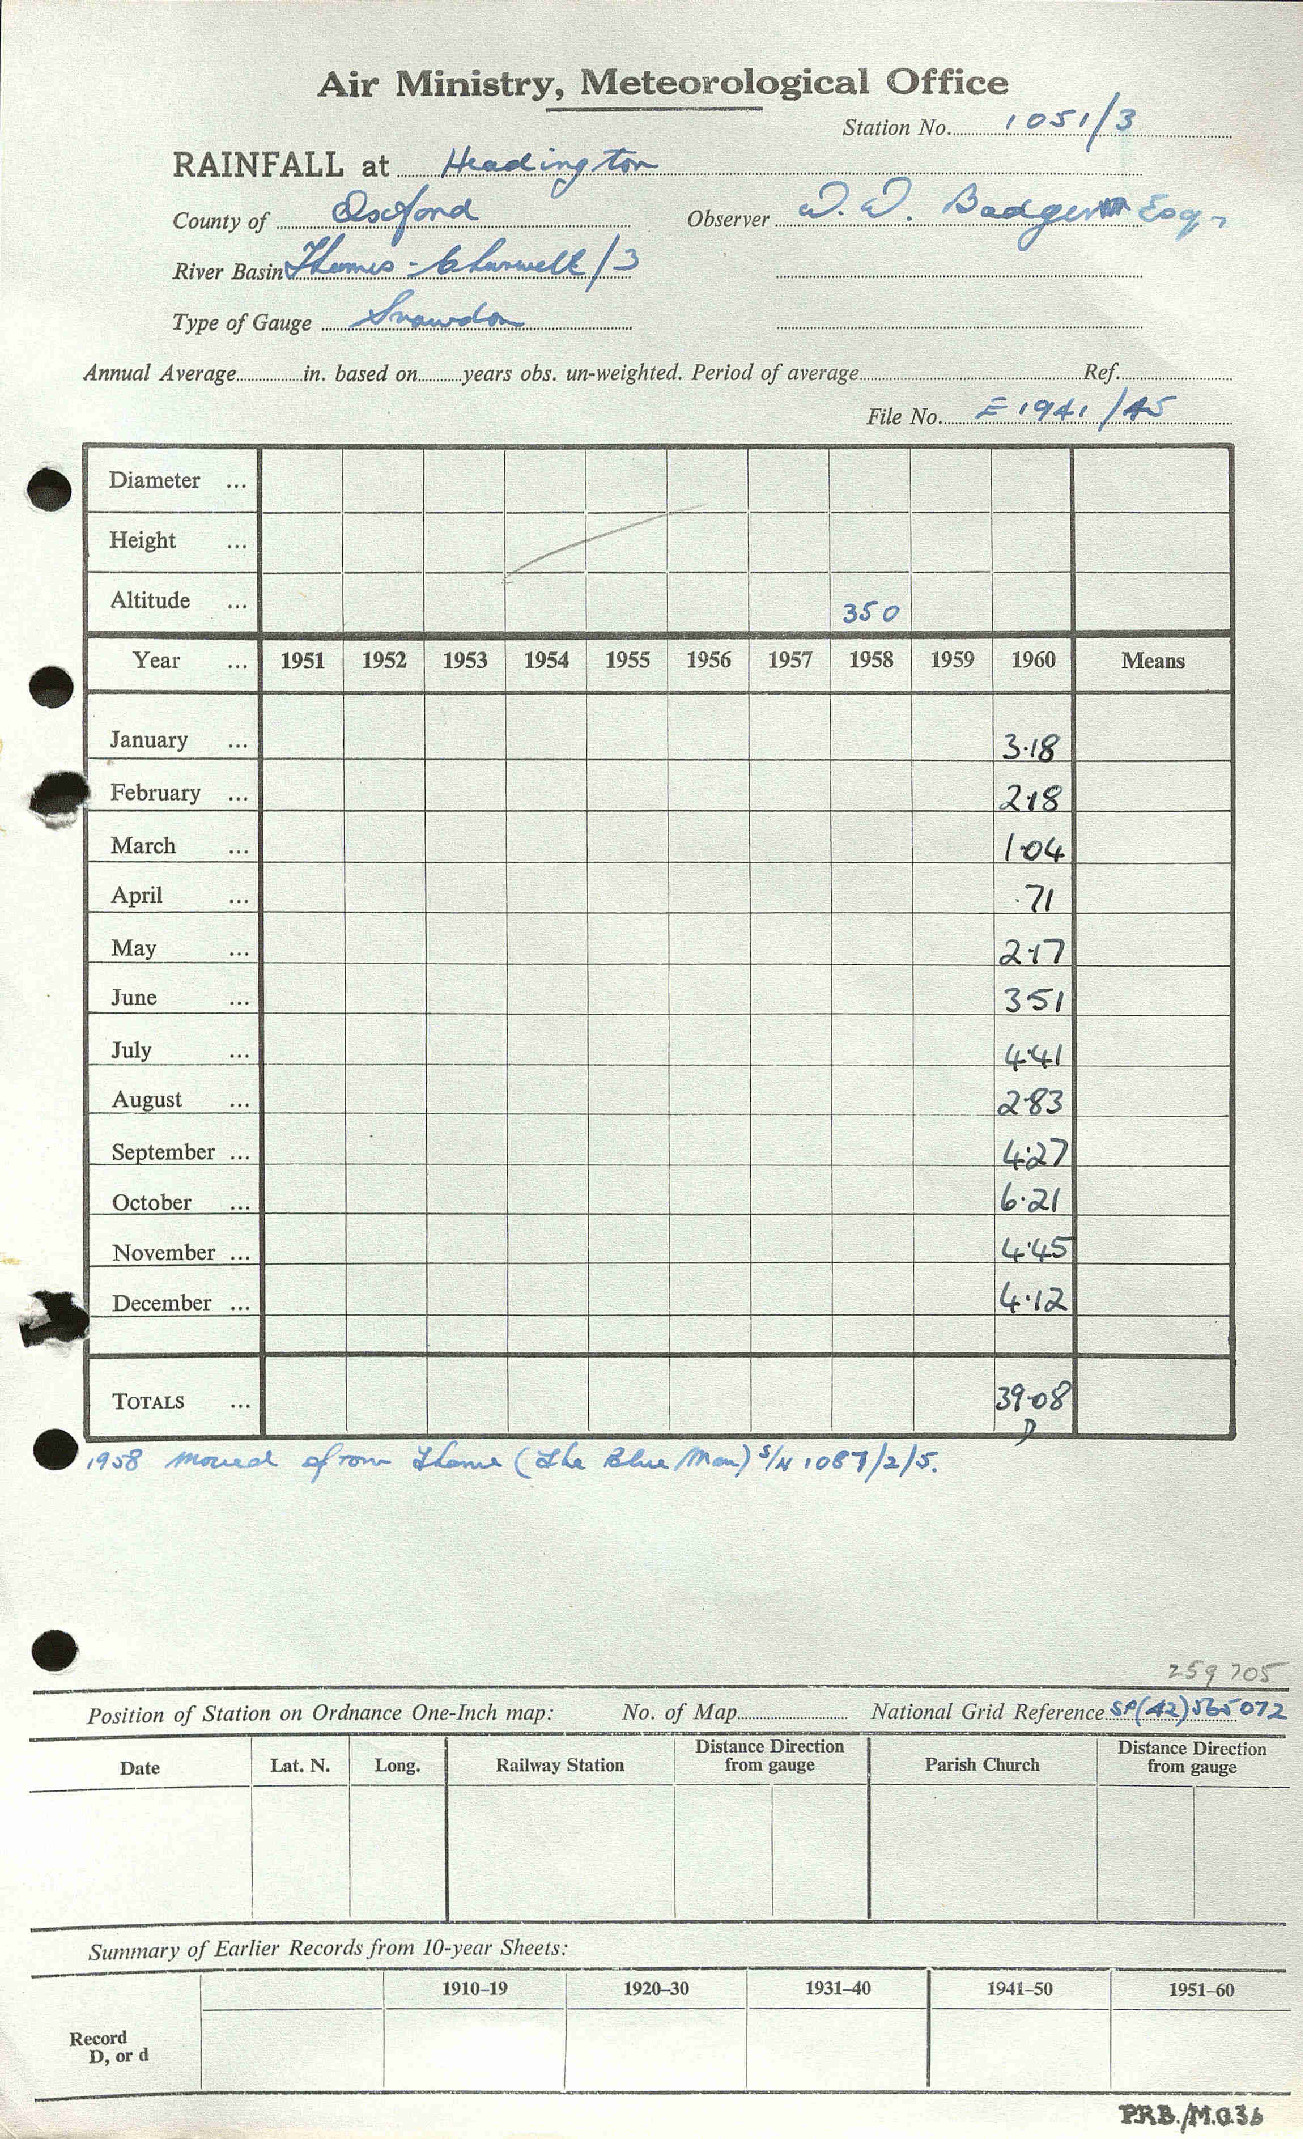 Air Ministry, Meteorological Office
Station No. 1051/3
RAINFALL at Headington
County of Oxford Observer W. W. Badger Esq.
River Basin Thames - Cherwell/3
Type of Gauge Snowdon
Annual Average in. based on years obs. un-weighted. Period of average Ref.
File No. E 1941/45
Diameter ...
Height ...
Altitude ... 350
Year ... 1951 1952 1953 1954 1955 1956 1957 1958 1959 1960 Means
January ... 3·18
February ... 2·18
March ... 1·04
April ... ·71
May ... 2·17
June ... 3·51
July ... 4·41
August ... 2·83
September ... 4·27
October ... 6·21
November ... 4·45
December ... 4·12
TOTALS ... 39·08
D
1958 moved from Thame (The Blue Man) S/N 1087/2/5.
259 705
Position of Station on Ordnance One-Inch map: No. of Map National Grid Reference SP(42)565072
Date Lat. N. Long. Railway Station Distance Direction from gauge Parish Church Distance Direction from gauge
Summary of Earlier Records from 10-year Sheets:
1910–19 1920–30 1931–40 1941–50 1951–60
Record
D, or d
PRB./M.O.36